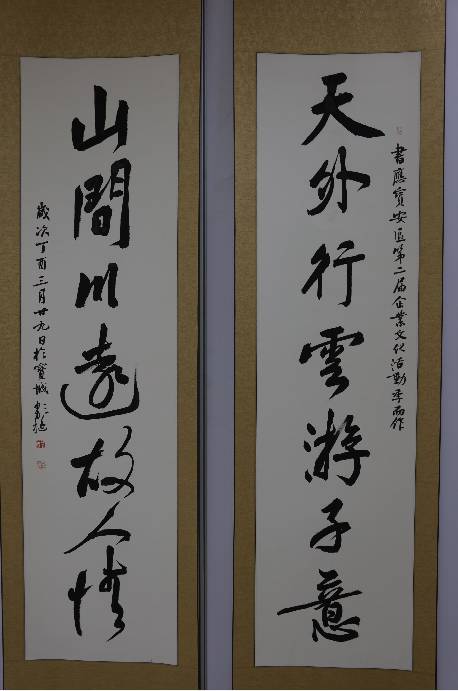 天外行雲游子意
書應寶安區第二屆企業文化活動季而作
山間川遠故人情
歲次丁酉三月廿九日於寶城